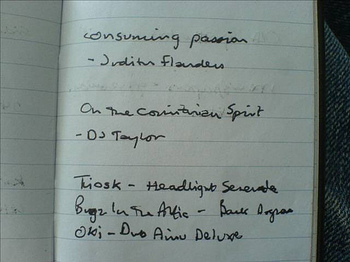 consuming passion
- Judith Flanders
On the Corinthian Spirit
- DJ Taylor
Triosk - Headlight Serenade
Bugz In The Attic - Back Dogma
Oki - Dub Ainu Deluxe